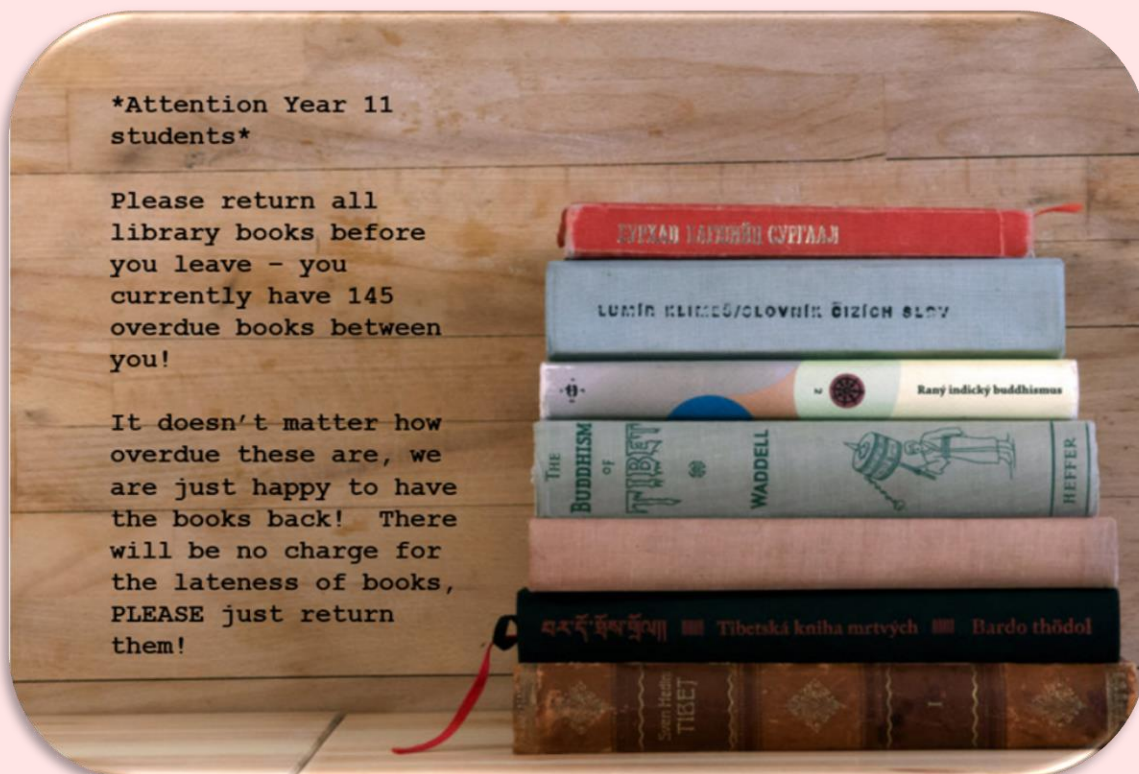 *Attention Year 11
students*
Please return all
library books before
you leave – you
currently have 145
overdue books between
you!
It doesn't matter how
overdue these are, we
are just happy to have
the books back!  There
will be no charge for
the lateness of books,
PLEASE just return
them!
СУРГААЛ
LUMÍR KLIMEŠ/SLOVNÍK CIZÍCH SLOV
2
Raný indický buddhismus
THE
BUDDHISM
OF
TIBET
WADDELL
HEFFER
Tibetská kniha mrtvých
Bardo thödol
Sven Hedin
TIBET
I